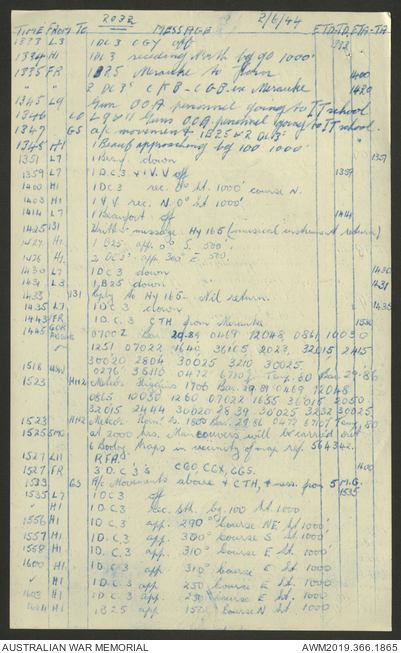 2032 2/6/44
TIME FROM TO MESSAGE ETD-TD, ETA-TA
1333 L3 1 DC3 CGY off 1332
1334 H1 1 DC3 receding North by 90 1000'
1335 FR 1 B25 Merauke to 1400
" " 2 DC3's CKB-CGB in Merauke 1430
1345 L9 Gun OOA personnel going to IT school
1346 L9 & 11 Guns OOA personnel going to IT school.
1347 G5 a/c movement 1 B25 & 2 DC3's "
1348 H1 1 Beauf approaching by 100 1000'
1351 L7 1 Beauf. down 1351
1359 L7 1 D.C.3 & 1 V.V off 1359
1400 H1 1 DC3 rec. 0° ht. 1000' course N.
1403 H1 1 V V rec. N. 0° ht 1000'
1414 L7 1 Beaufort off 1414
1425 131 message Hy 165 (musical instrument return)
1427 H1 1 B25 app. 0° S. 500'.
1426 H1 2 DC3's app. 360° E. 500.
1430 L7 1 DC3 down 1430
1431 L3 1 B25 down 1431
1433 131 Reply to Hy 165 - Nil return.
1435 L7 1 DC3 down 1435
1443 FR 1 D.C.3 CTH from Merauke 1530
1445 0700Z Bar. 29.89 0469 72048, 0861 10030
" 1251 07022 1640 36105 2023, 32015 2415
30020 2804 30025 3210 30025.
1518 0276 36110 0472 67107 Temp. 80 Bar. 29.86
1523 HH2 Meteor Higgins 1706 Bar. 29.89 0469 72048
0865 10030 1260 07022 1655 36015 2050
32015 2444 30020 2839 30025 3232 30025.
1523 HH2 Meteor 1800 Bar. 29.86 0472 67107 Temp. 80
1525 SMG at 2000 hrs. Manoeuvres will be carried out
6 Booby traps in vicinity of map ref. 564342.
1527 L11 R.F.A.
1527 FR 3 D.C.3's CGO, CCX, GGS. 1400
1533 G3 A/c Movements above & CTH, & mess. from S.M.G.
1535 L7 1 DC3 off 1535
" H1 1 DC3 rec. Sth. by 100 ht 1000
1556 H1 1 D.C.3 app. 290° course NE ht 1000'
1557 H1 1 D.C.3 app. 300° course S ht 1000'
1559 H1 1 D.C.3 app. 310° course E ht 1000'
1600 H1 1 D.C.3 app. 310° course E ht. 1000
" H1 1 D.C.3 app 250 course E ht. 1000
1603 H1 1 D.C.3 app. 290 course E ht. 1000
H1 1 B.25 app course N ht 1000
AUSTRALIAN WAR MEMORIAL AWM2019.366.1865